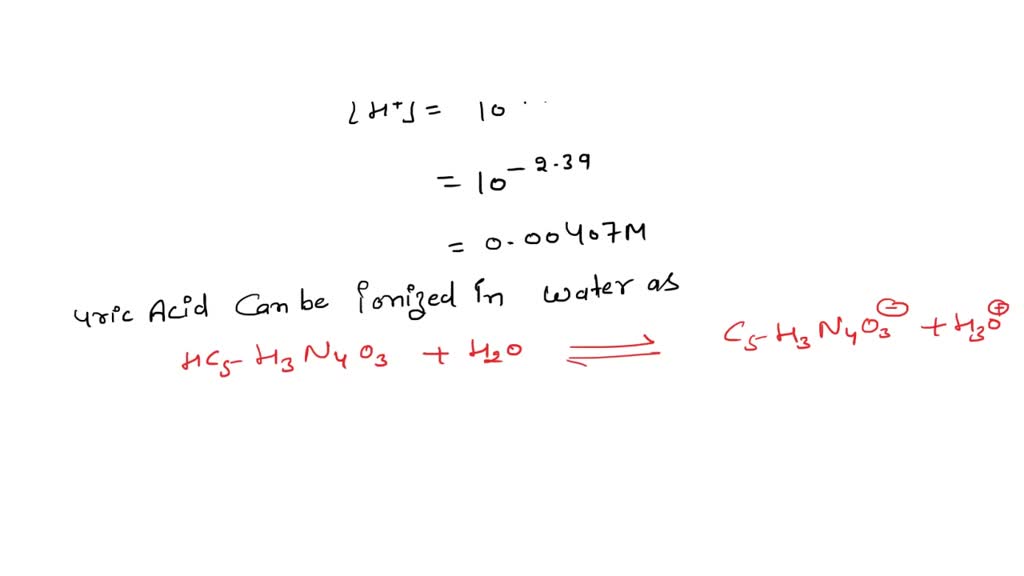 [H+] = 10
= 10^-2.39
= 0.00407M
uric Acid Can be ionized In water as
HC5-H3N4O3 + H2O ⇌ C5-H3N4O3⊖ + H3O⊕